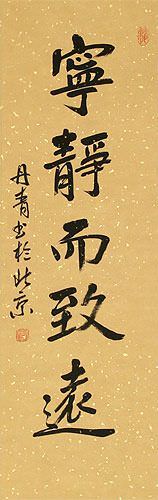 寧靜而致遠
丹青书於北京